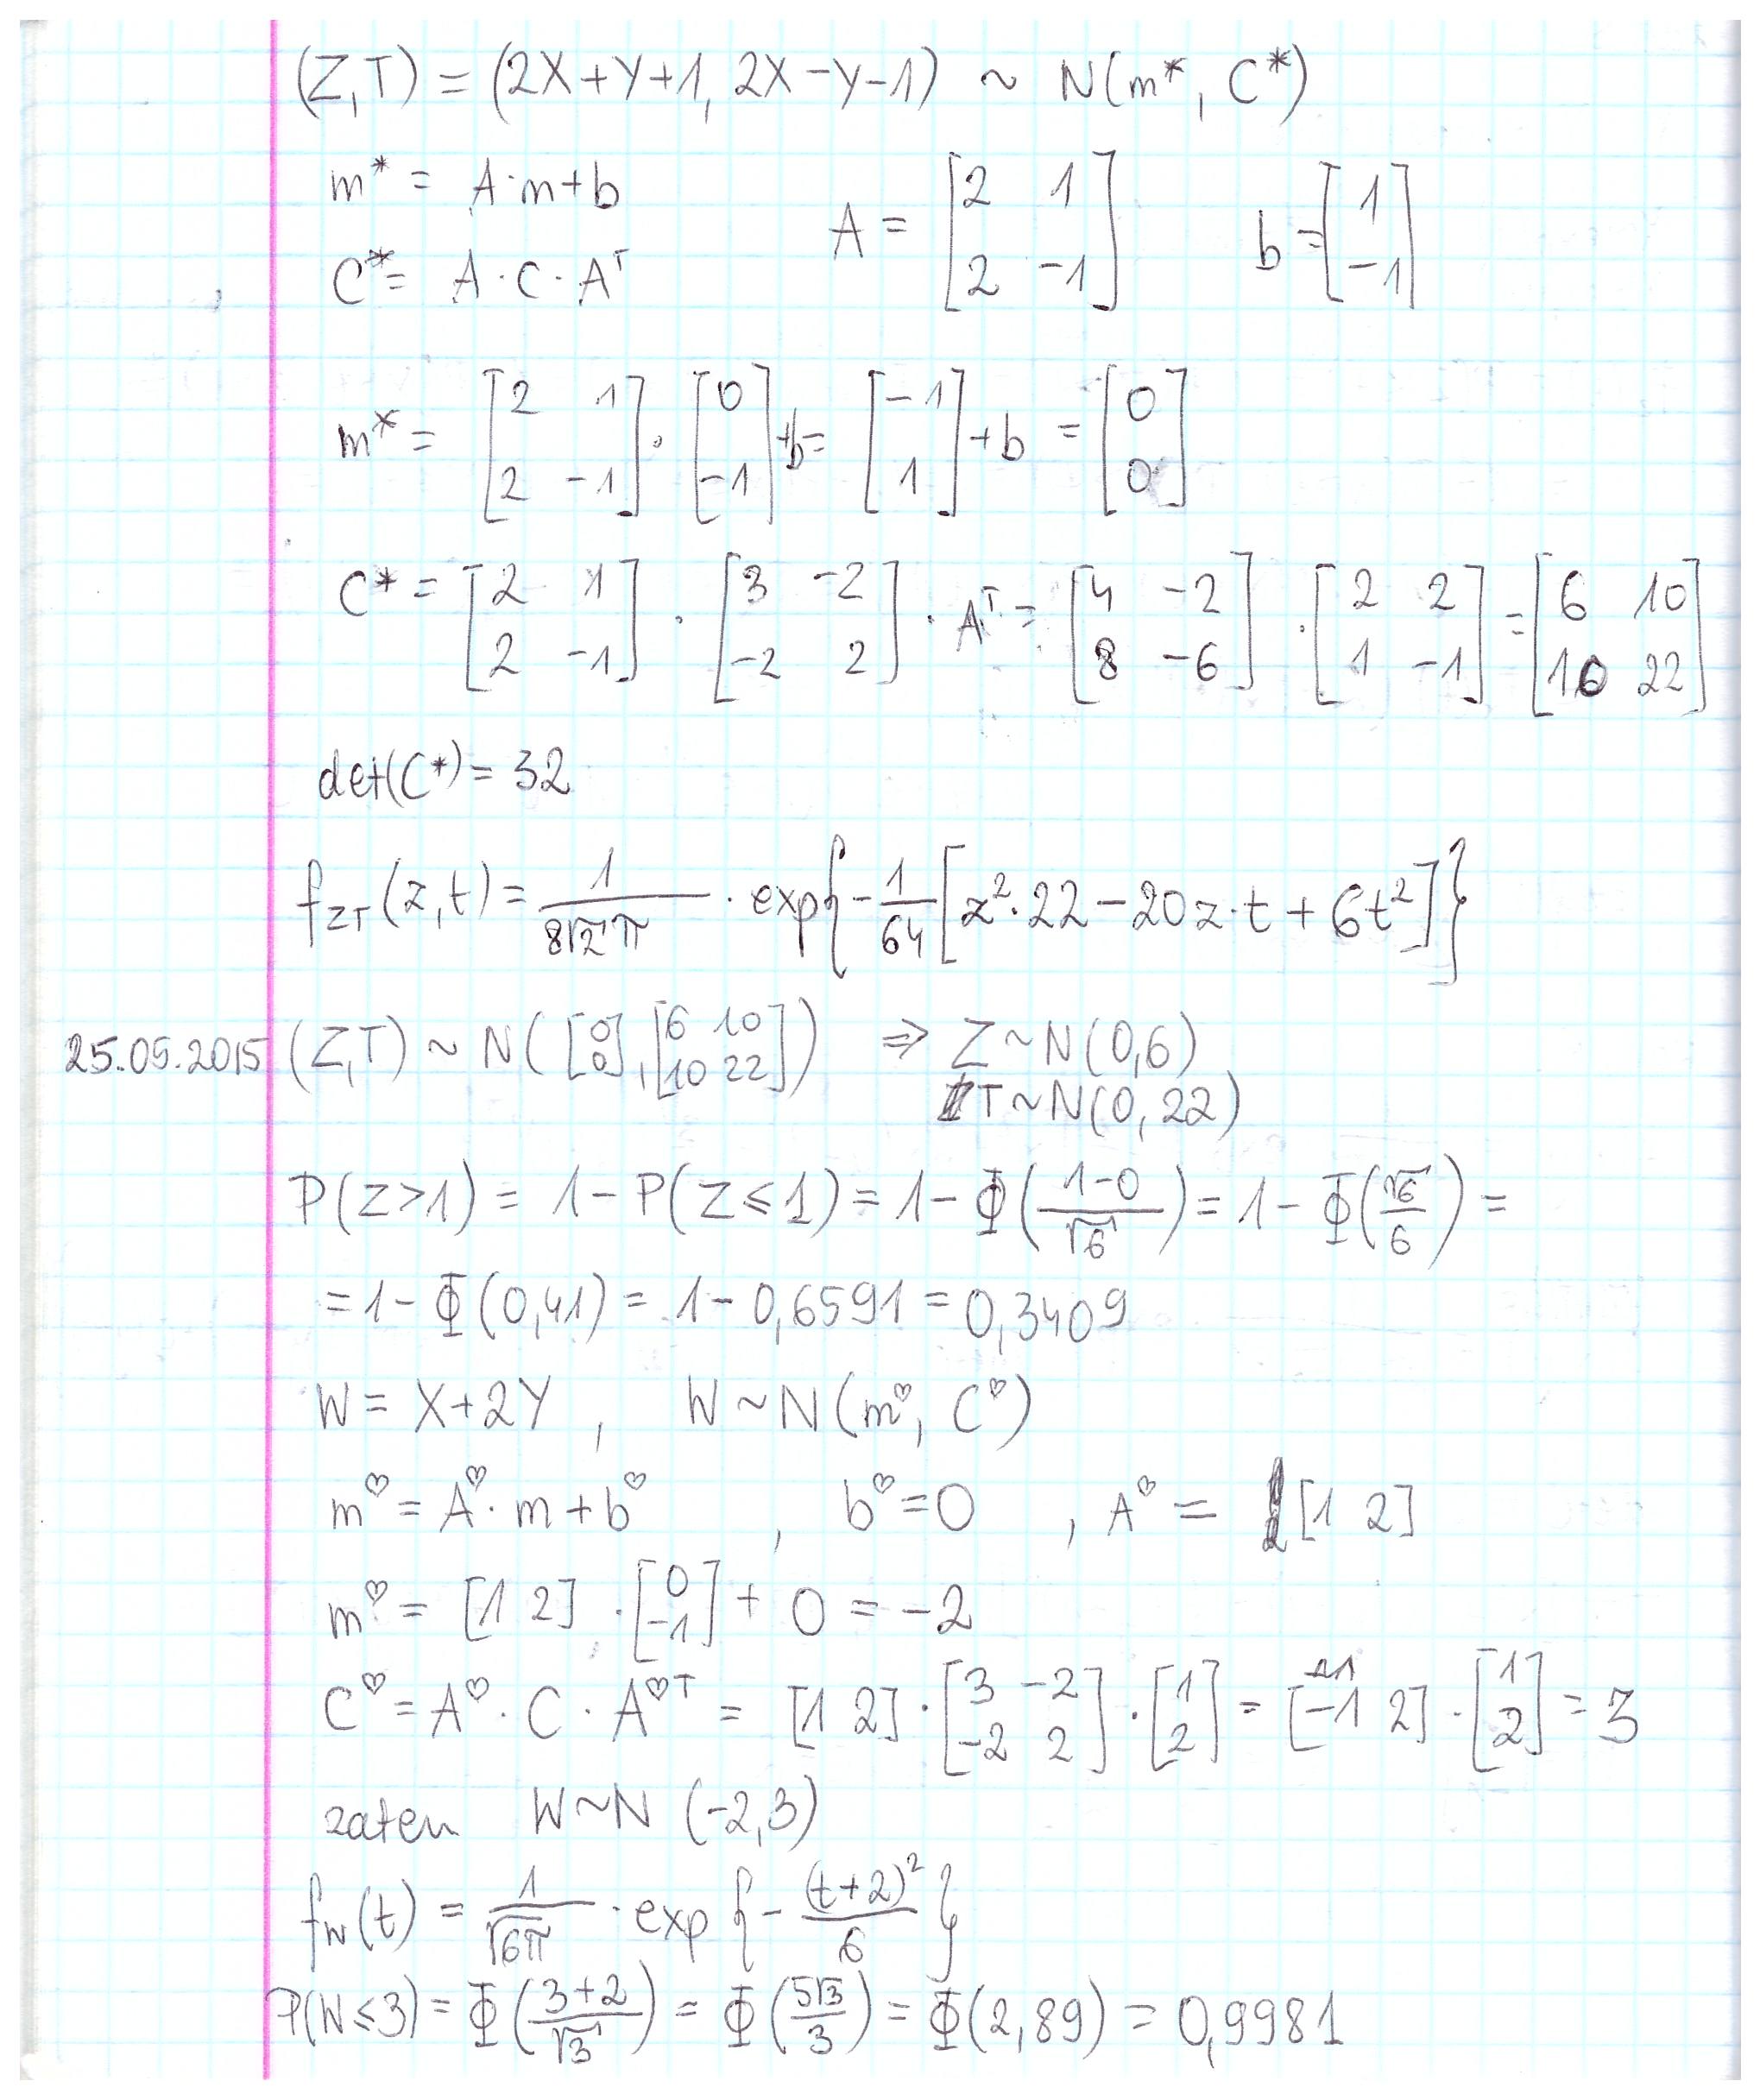 (Z,T) = (2X+Y+1, 2X-Y-1) ~ N(m*, C*)
m* = A·m+b
C* = A·C·Aᵀ
A = [2 1; 2 -1] b = [1; -1]
m* = [2 1; 2 -1] · [0; -1] +b = [-1; 1] +b = [0; 0]
C* = [2 1; 2 -1] · [3 -2; -2 2] · Aᵀ = [4 -2; 8 -6] · [2 2; 1 -1] = [6 10; 10 22]
det(C*) = 32
f_ZT(z,t) = 1/(8√2 π) · exp{-1/64 [z²·22 - 20z·t + 6t²]}
25.05.2015 (Z,T) ~ N([0; 0], [6 10; 10 22]) ⇒ Z~N(0,6)
T~N(0,22)
P(Z>1) = 1-P(Z≤1) = 1-Φ((1-0)/√6) = 1-Φ(√6/6) =
= 1-Φ(0,41) = 1-0,6591 = 0,3409
W = X+2Y , W~N(m♡, C♡)
m♡ = A♡·m+b♡ , b♡=0 , A♡ = [1 2]
m♡ = [1 2] · [0; -1] + 0 = -2
C♡ = A♡·C·A♡ᵀ = [1 2] · [3 -2; -2 2] · [1; 2] = [-1 2] · [1; 2] = 3
zatem W~N (-2,3)
f_W(t) = 1/√6π · exp{-(t+2)²/6}
P(W≤3) = Φ((3+2)/√3) = Φ(5√3/3) = Φ(2,89) = 0,9981